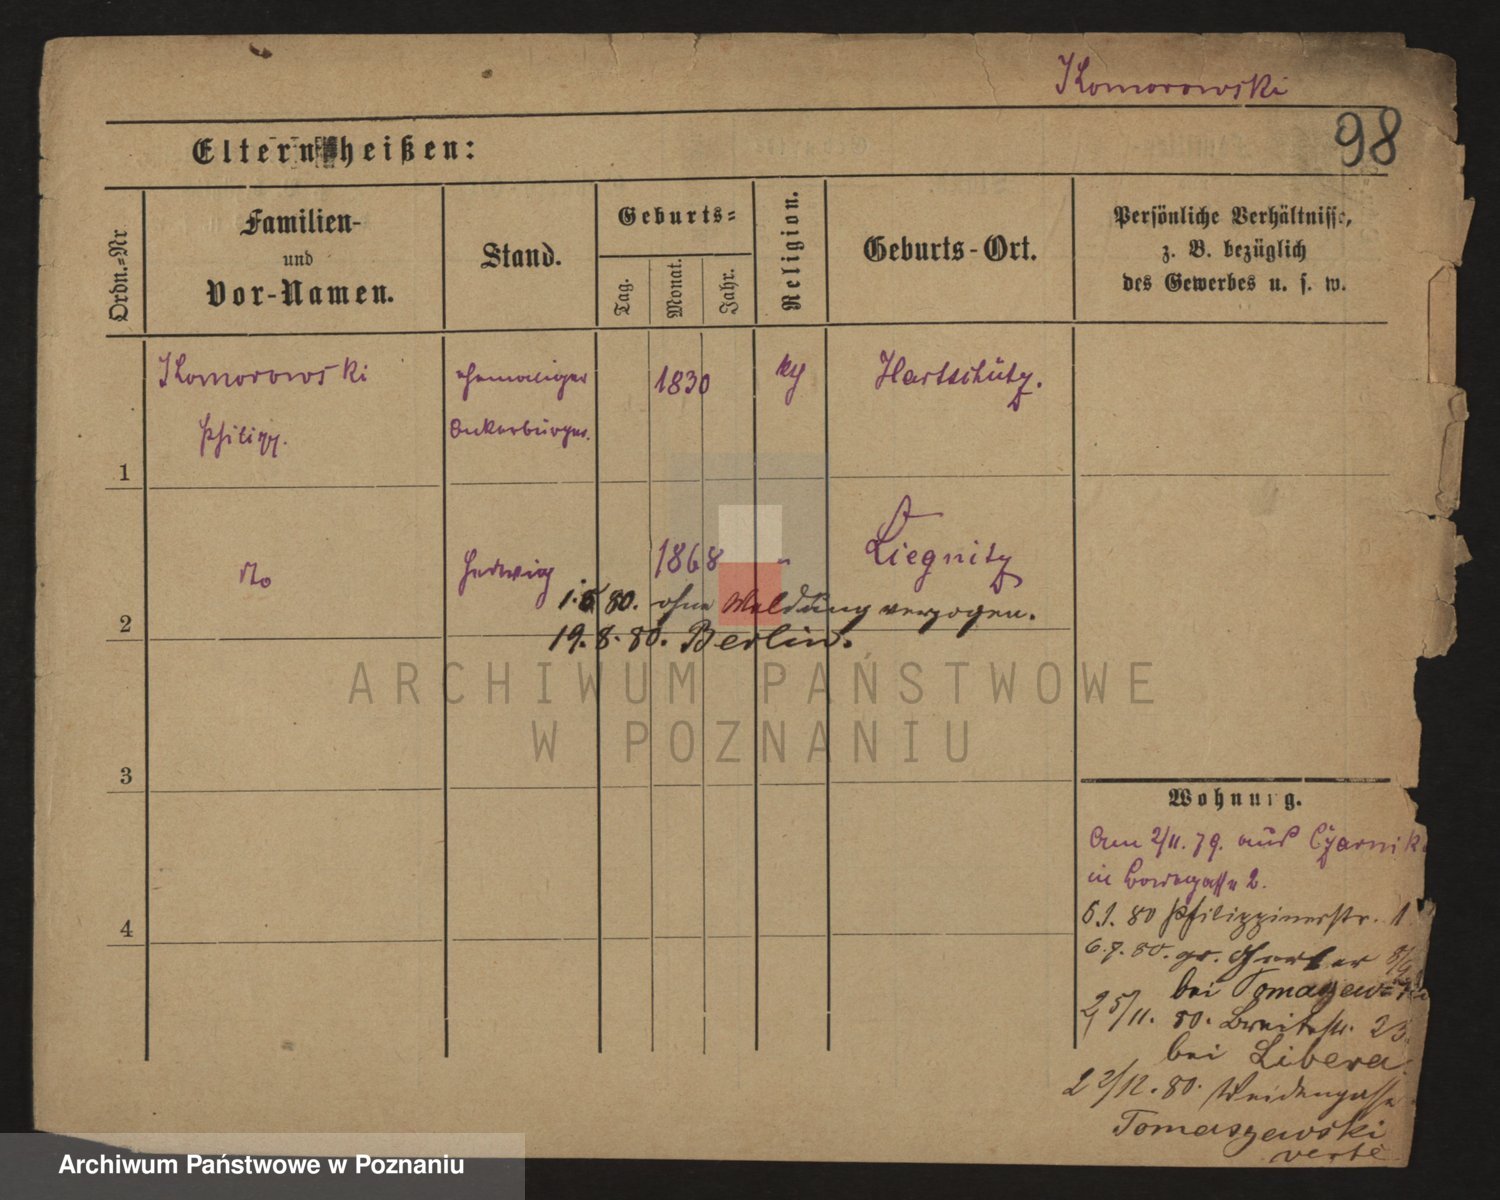 Komorowski
98
Eltern heißen:
Ordn.-Nr
Familien-
und
Vor-Namen.
Stand.
Geburts-
Tag.
Monat.
Jahr.
Religion.
Geburts-Ort.
Persönliche Verhältnisse,
z. B. bezüglich
des Gewerbes u. s. w.
Komorowski ehemaliger 1830 Hartschütz.
Philipp. Ackerbürger.
1
Hedwig 1868 " Liegnitz
1. 80. ohne Meldung verzogen.
2
19. 8. 80. Berlin.
ARCHIWUM PAŃSTWOWE
W POZNANIU
3
Wohnung.
Am 2/11. 79. aus Czarnik
in 2.
6.1. 80 Philippinerstr. 1
6.7. 80. gr. Gerber 8/9
bei Tomaszewski
25/11. 80. Breitestr. 23.
bei Libera.
4
22/12. 80. Weidengasse
Tomaszewski
verte
Archiwum Państwowe w Poznaniu